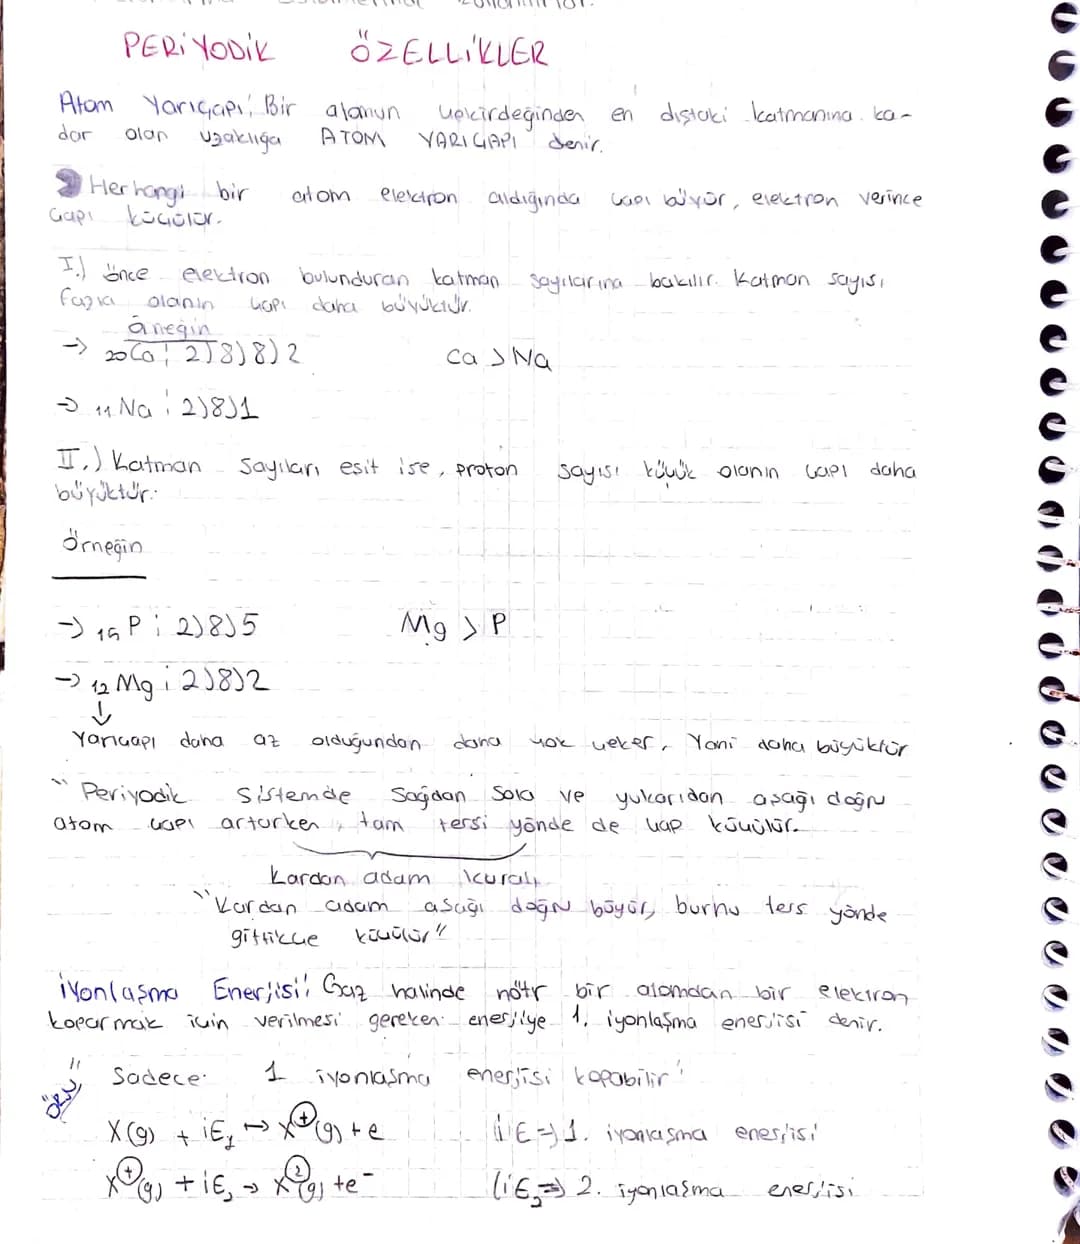 PERİYODİK ÖZELLİKLER
Atom Yarıçapı: Bir atomun çekirdeğinden en dıştaki katmanına ka-
dar olan uzaklığa ATOM YARIÇAPI denir.
Herhangi bir atom elektron aldığında çapı büyür, elektron verince
çapı küçülür.
I.) önce elektron bulunduran katman sayılarına bakılır. Katman sayısı
fazla olanın çapı daha büyüktür.
örneğin
→ 20Ca: 2)8)8)2 Ca > Na
→ 11Na: 2)8)1
II.) Katman sayıları eşit ise, proton sayısı küçük olanın çapı daha
büyüktür.
Örneğin
→ 15P: 2)8)5 Mg > P
→ 12Mg: 2)8)2
↓
Yarıçapı daha az olduğundan daha çok çeker, Yani daha büyüktür
"Periyodik sistemde Sağdan Sola ve yukarıdan aşağı doğru
atom çapı artarken, tam tersi yönde de çap küçülür.
kardan adam kuralı
"Kardan adam aşağı doğru büyür, burnu ters yönde
gittikçe küçülür"
İyonlaşma Enerjisi: Gaz halinde nötr bir atomdan bir elektron
koparmak için verilmesi gereken enerjiye 1. iyonlaşma enerjisi denir.
" Sadece 1 iyonlaşma enerjisi kopabilir
X(g) + İE1 → X+(g) + e (İE ⇒ 1. iyonlaşma enerjisi
X+(g) + İE2 → X2(g) + e- (İE2 ⇒ 2. iyonlaşma enerjisi